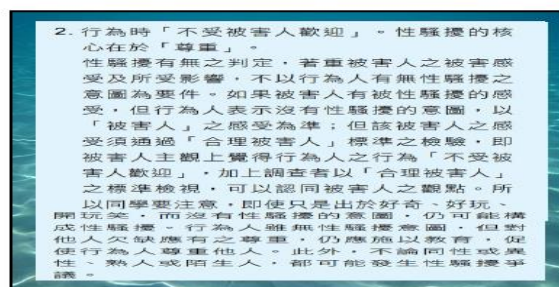 2. 行為時「不受被害人歡迎」。性騷擾的核
心在於「尊重」。
性騷擾有無之判定，著重被害人之被害感
受及所受影響，不以行為人有無性騷擾之
意圖為要件。如果被害人有被性騷擾的感
受，但行為人表示沒有性騷擾的意圖，以
「被害人」之感受為準；但該被害人之感
受須通過「合理被害人」標準之檢驗，即
被害人主觀上覺得行為人之行為「不受被
害人歡迎」，加上調查者以「合理被害人」
之標準檢視，可以認同被害人之觀點。所
以同學要注意，即使只是出於好奇、好玩、
開玩笑，而沒有性騷擾的意圖，仍可能構
成性騷擾。行為人雖無性騷擾意圖，但對
他人欠缺應有之尊重，仍應施以教育，促
使行為人尊重他人。此外，不論同性或異
性、熟人或陌生人，都可能發生性騷擾爭
議。